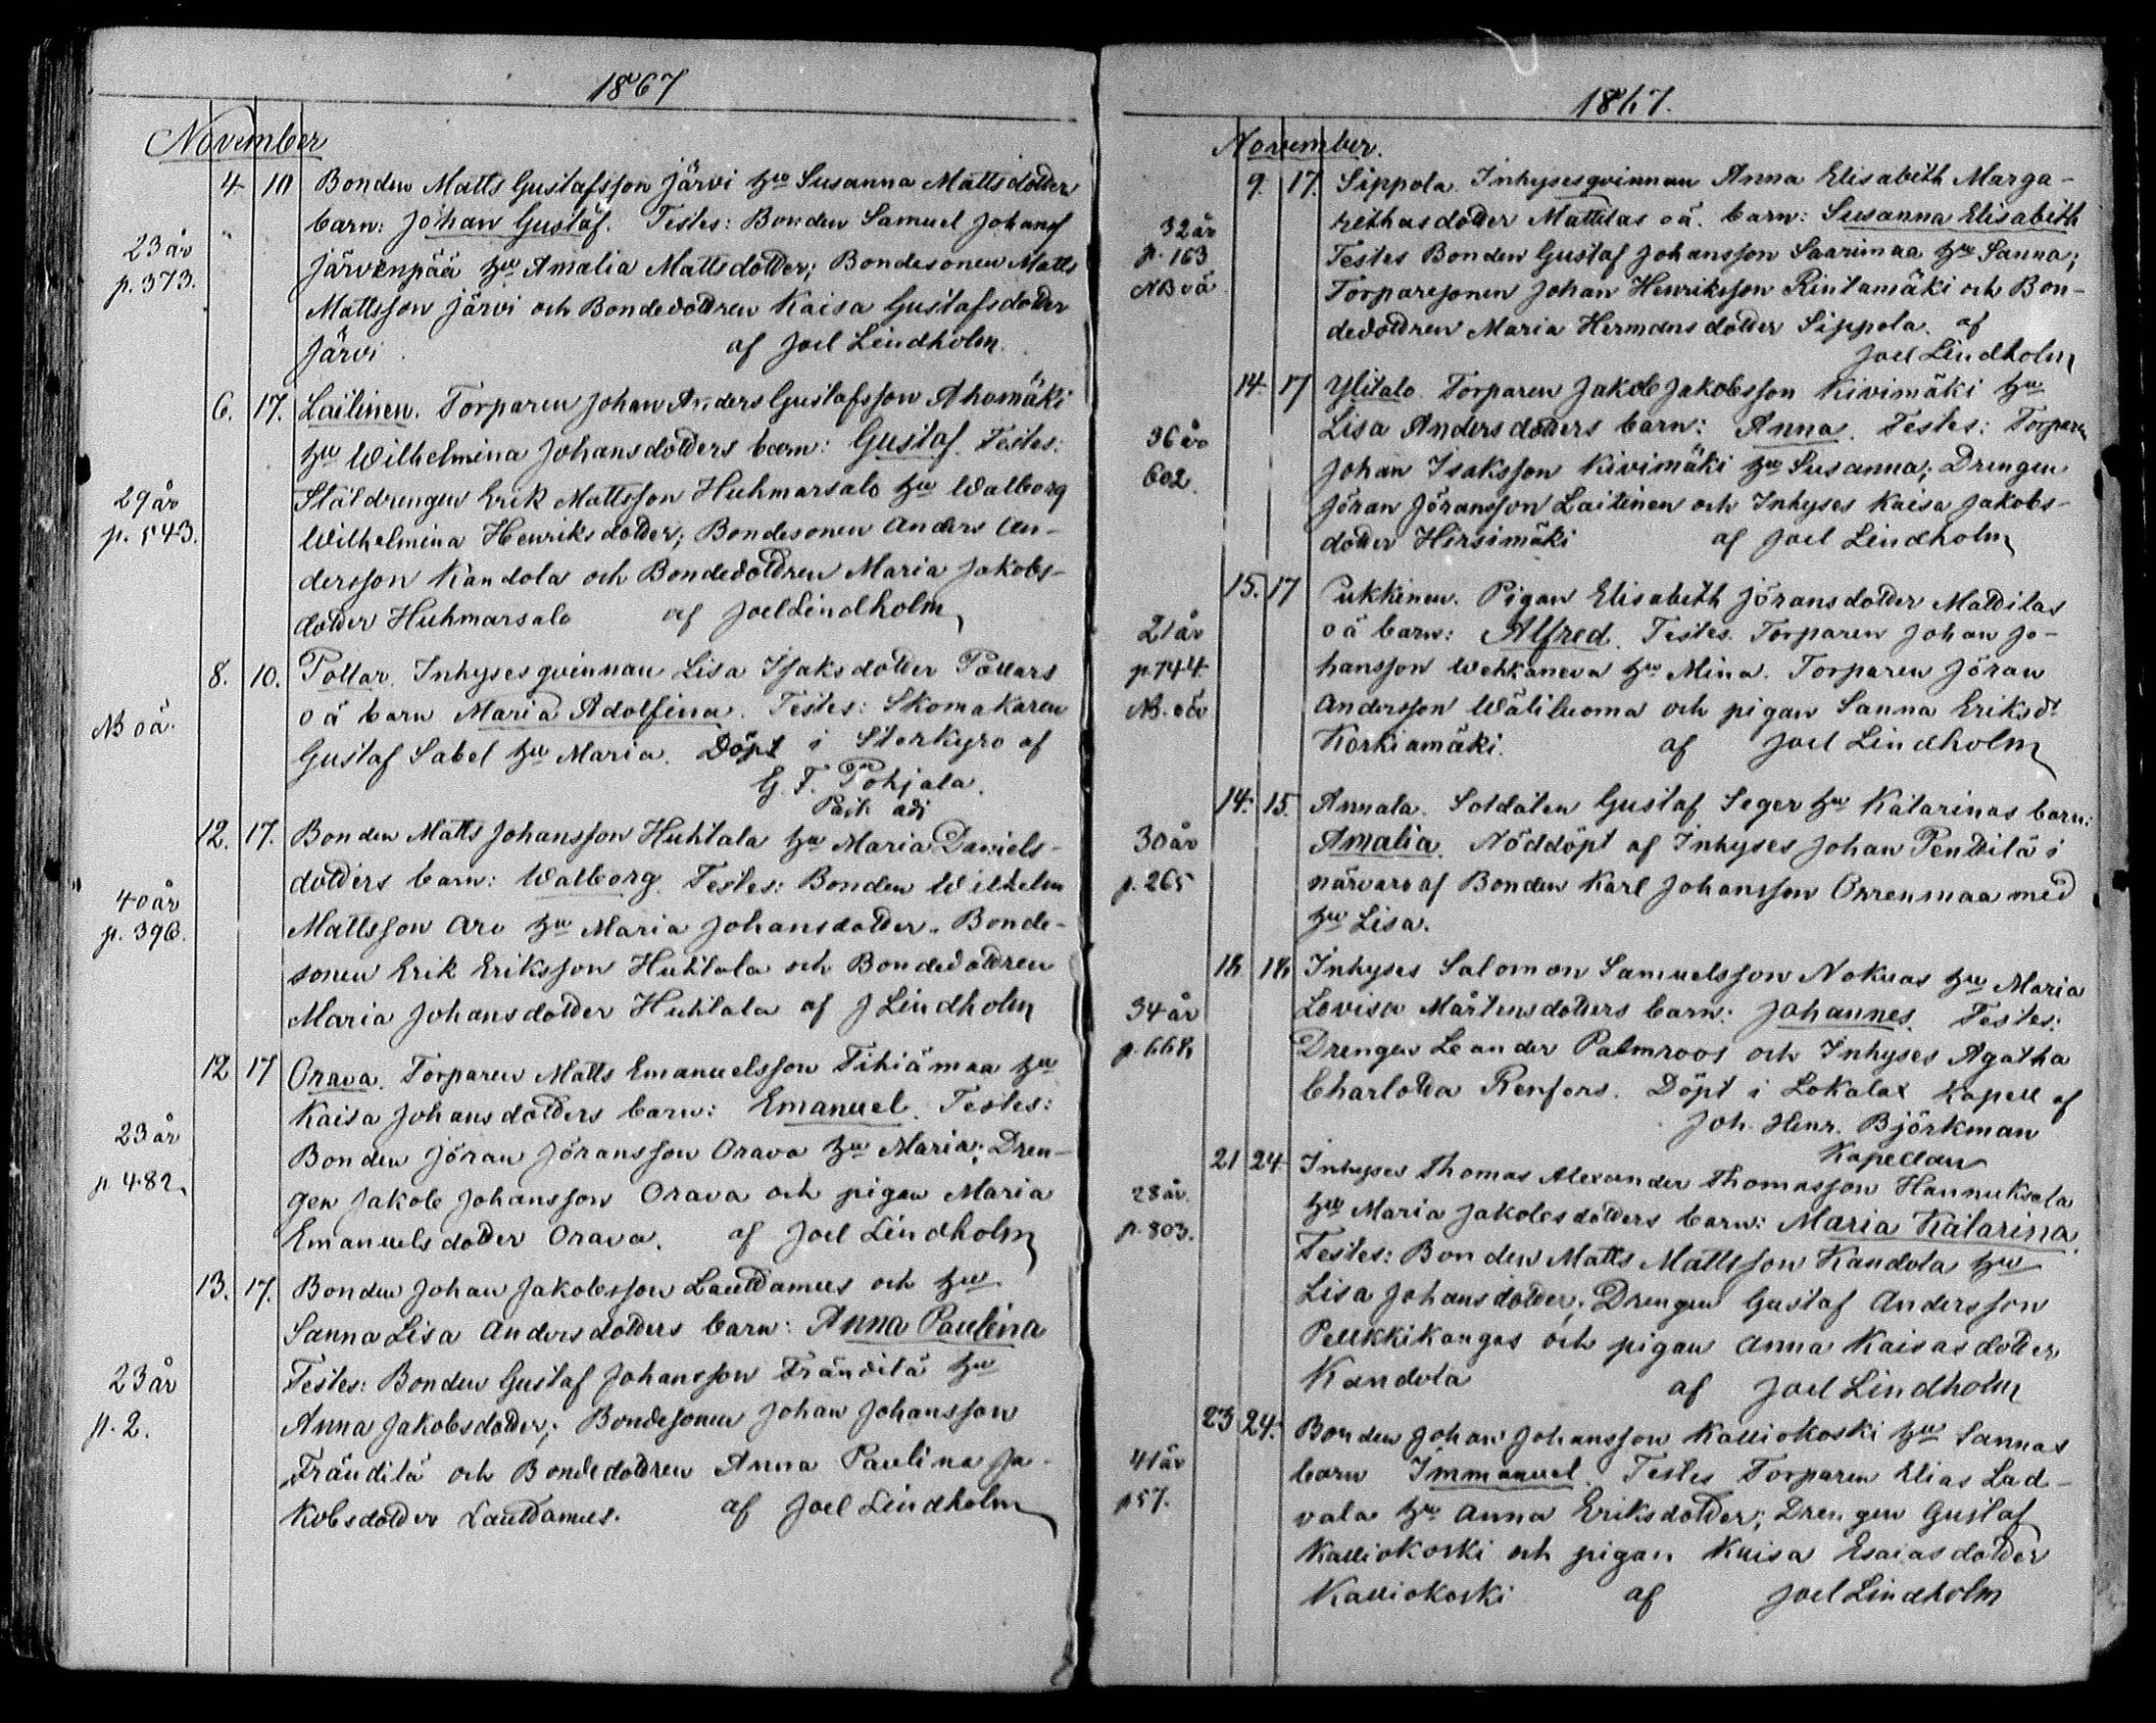 1867
November
4. 10 Bonden Matts Gustafsson Järvi hu Susanna Mattsdotter
barn: Johan Gustaf. Testes: Bonden Samuel Johans
23 år
Järvenpää hu Amalia Mattsdotter; Bondesonen Matts
p. 373.
Mattsson Järvi och Bondedottren Kaisa Gustafsdotter
Järvi. af Joel Lindholm.
6. 17. Laitinen. Torparen Johan Anders Gustafsson Ahomäki
hu Wilhelmina Johansdotters barn: Gustaf. Testes:
29 år
Städdrengen Erik Mattsson Huhmarsalo hu Walborg
p. 543.
Wilhelmina Henriksdotter; Bondesonen Anders An-
dersson Kandola och Bondedottren Maria Jakobs-
dotter Huhmarsalo af Joel Lindholm
8. 10. Pottar. Inhysesqvinnan Lisa Isaksdotter Pottars
NB oä.
o ä barn Maria Adolfina. Testes: Skomakaren
Gustaf Sabel hu Maria. Döpt i Storkyro af
G. F. Pohjala.
Past. adj
12. 17. Bonden Matts Johansson Huhtala hu Maria Daniels-
40 år
dotters barn: Walborg. Testes: Bonden Wilhelm
p. 396.
Mattsson Aro hu Maria Johansdotter. Bonde-
sonen Erik Eriksson Huhtala och Bondedottren
Maria Johansdotter Huhtala af J Lindholm
12 17 Orava. Torparen Matts Emanuelsson Tihiämaa hu
Kaisa Johansdotters barn: Emanuel. Testes:
23 år
Bonden Jöran Jöransson Orava hu Maria; Dren-
p. 482
gen Jakob Johansson Orava och pigan Maria
Emanuelsdotter Orava. af Joel Lindholm
13. 17. Bonden Johan Jakobsson Lauttamus och hu
Sanna Lisa Andersdotters barn: Anna Paulina
23 år
Testes: Bonden Gustaf Johansson Fränditä hu
p. 2.
Anna Jakobsdotter; Bondesonen Johan Johansson
Fränditä och Bondedottren Anna Paulina Ja-
kobsdotter Lauttamus. af Joel Lindholm
1867.
November.
9. 17. Sippola. Inhysesqvinnan Anna Elisabeth Marga-
32 år
rethasdotter Mattilas oä. barn: Susanna Elisabeth
p. 163
Testes Bonden Gustaf Johansson Saarimaa hu Sanna;
NB oä
Torparesonen Johan Henriksson Rintamäki och Bon-
dedottren Maria Hermansdotter Sippola. af
Joel Lindholm
14. 17 Ylitalo. Torparen Jakob Jakobsson Kivimäki hu
36 år
Lisa Andersdotters barn: Anna. Testes: Torparen
602.
Johan Isaksson Kivimäki hu Susanna; Drengen
Jöran Jöransson Laitinen och Inhyses Kaisa Jakobs-
dotter Hirsimäki af Joel Lindholm
15. 17 Pukkinen. Pigan Elisabeth Jöransdotter Mattilas
21 år
o ä barn: Alfred. Testes. Torparen Johan Jo-
p. 744.
hansson Wehkaneva hu Mina. Torparen Jöran
NB. oä
Andersson Wäliluoma och pigan Sanna Eriksdt
Korkiamäki. af Joel Lindholm
14. 15. Annala. Soldaten Gustaf Seger hu Katarinas barn:
30 år
Amalia. Nöddöpt af Inhyses Johan Penttilä i
p. 265
närvaro af Bonden Karl Johansson Orrenmaa med
hu Lisa.
18 18 Inhyses Salomon Samuelsson Nokuas hu Maria
34 år
Lovisa Mårtensdotters barn: Johannes. Testes:
p. 668
Drengen Leander Palmroos och Inhyses Agatha
Charlotta Renfors. Döpt i Lokalax Kapell af
Joh. Henr. Björkman
Kapellan
21 24 Inhyses Thomas Alexander Thomasson Hannuksela
28 år.
hu Maria Jakobsdotters barn: Maria Katarina.
p. 803.
Testes: Bonden Matts Mattsson Kandola hu
Lisa Johansdotter; Drengen Gustaf Andersson
Pelkkikangas och pigan Anna Kaisasdotter
Kandola af Joel Lindholm
23 24. Bonden Johan Johansson Kalliokoski hu Sannas
41 år
barn Immanuel. Testes Torparen Elias Lad-
p 57.
vala hu Anna Eriksdotter; Drengen Gustaf
Kalliokoski och pigan Kaisa Esaiasdotter
Kalliokoski af Joel Lindholm